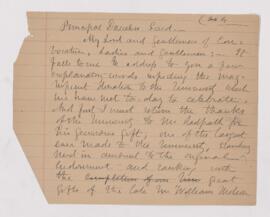 Principal Dawson, said—
My Lord and Gentlemen of Con-
vocation, Ladies and Gentlemen: — It
falls to me to address to you a few
explanatory words regarding the mag-
nificent donation to the University which
we have met to-day to celebrate,
And first I must return the thanks
of the University to Mr Redpath for
his generous gift, one of the largest
ever made to the University, standing
next in amount to the original
endowment and ranking with
the great
gifts of the late Mr William Molson